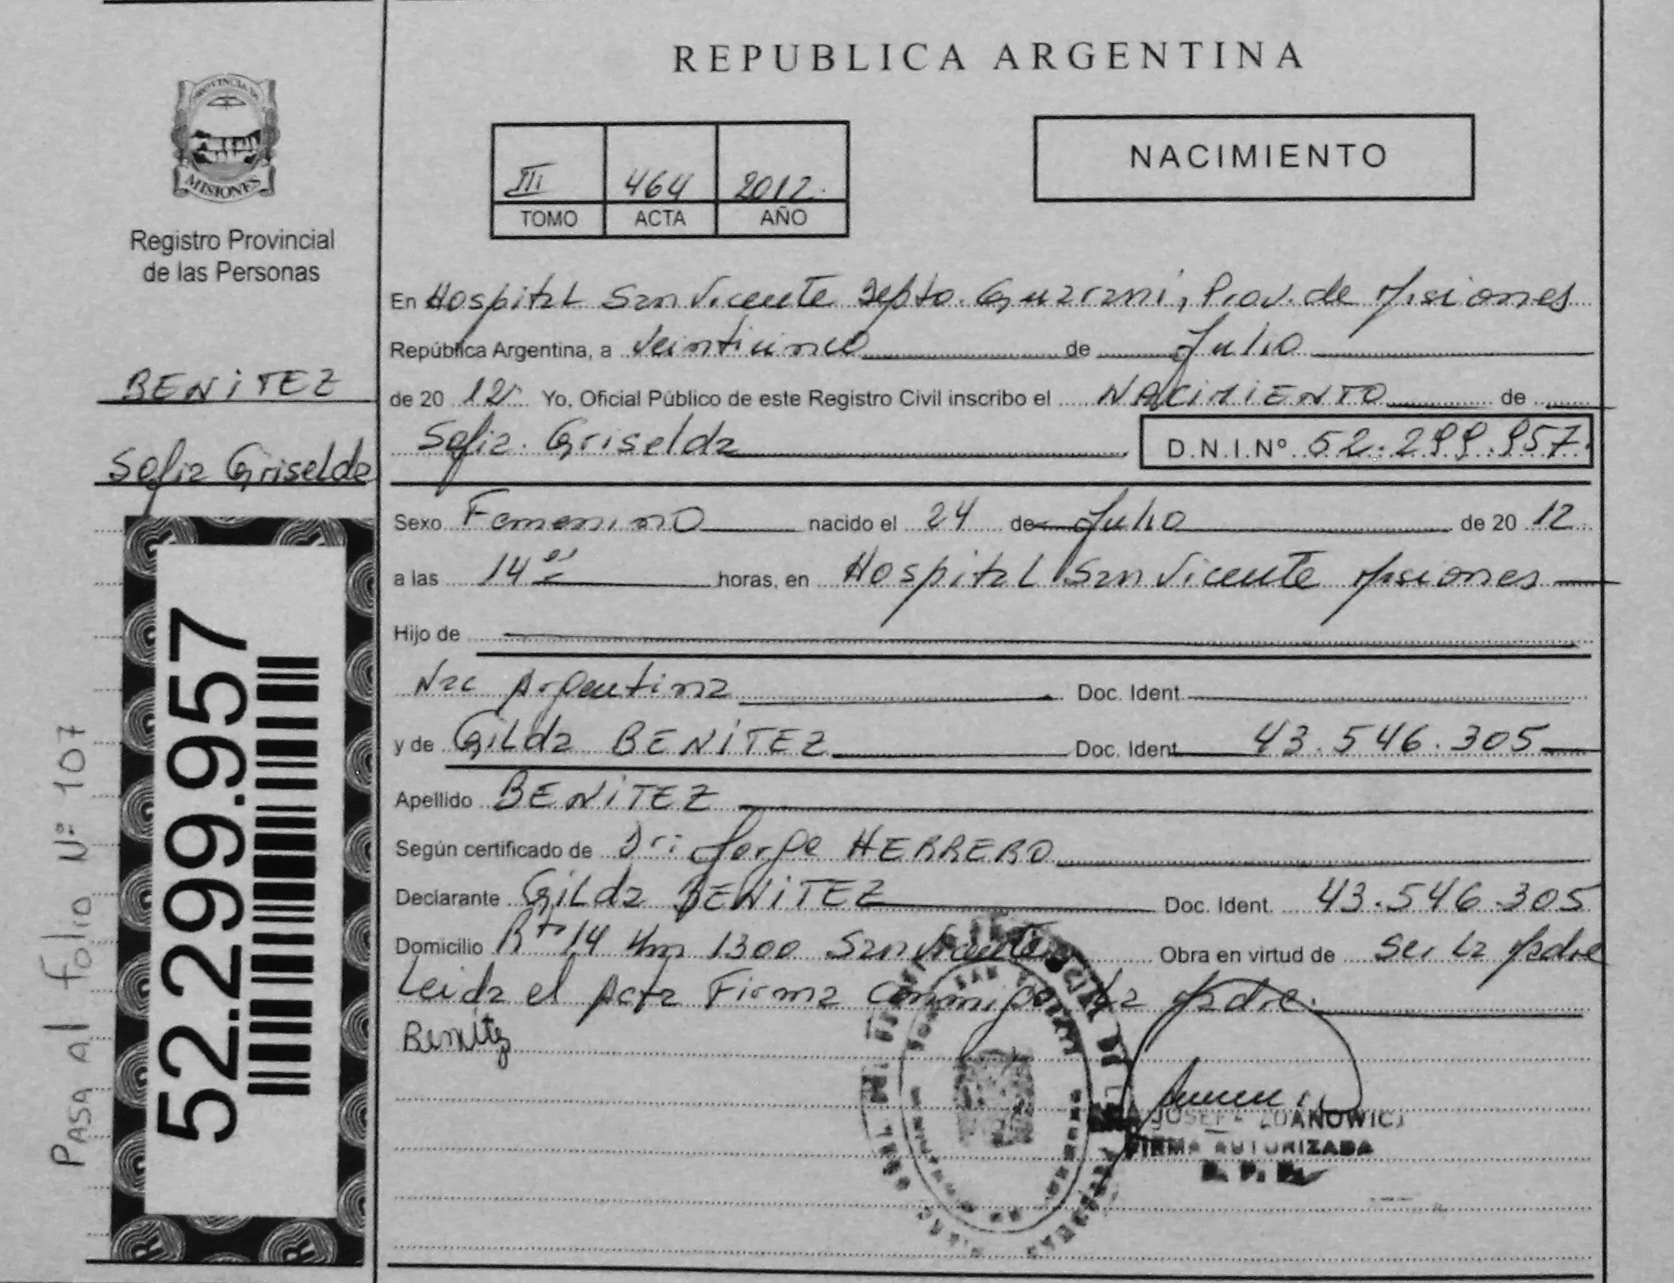 PROVINCIA DE
MISIONES
Registro Provincial
de las Personas
BENITEZ
Sofia Griselda
52.299.957
PASA Al Folio Nº 107
REPUBLICA ARGENTINA
NACIMIENTO
III 464 2012.
TOMO ACTA AÑO
En Hospital San Vicente Depto. Guarani, Prov. de Misiones
República Argentina, a Veinticinco de Julio
de 20 12 Yo, Oficial Público de este Registro Civil inscribo el NACIMIENTO de
Sofia Griselda D.N.I.Nº 52.299.957.
Sexo Femenino nacido el 24 de Julio de 20 12
a las 14 horas, en Hospital San Vicente Misiones
Hijo de
Nac Argentina Doc. Ident.
y de Gilda BENITEZ Doc. Ident. 43.546.305
Apellido BENITEZ
Según certificado de Dr: Jorge HERRERO
Declarante Gilda BENITEZ Doc. Ident. 43.546.305
Domicilio Rta 14 Km 1300 San Vicente Obra en virtud de Ser La Madre
Leida el Acta Firma conmigo La Madre.
Benitez
FIRMA AUTORIZADA